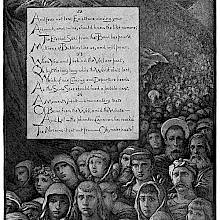 And fear not lest Existence closing your
Account, and mine, should know the like no more;
The Eternal Saki from that Bowl has pour'd
Millions of Bubbles like us, and will pour.
When You and I behind the Veil are past,
Oh, but the long, long while the World shall last,
Which of our Coming and Departure heeds
As the Sea's self should heed a pebble-cast.
A Moment's Halt—a momentary taste
Of Being from the Well amid the Waste—
And Lo! the phantom Caravan has reach'd
The Nothing it set out from—Oh, make haste!